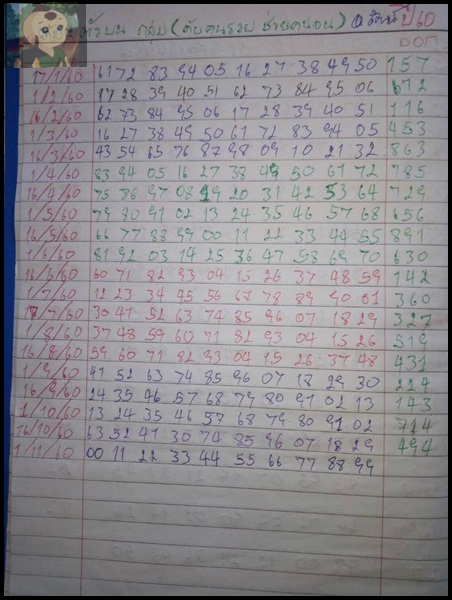 ตัวบน กลุ่ม (ดับคนรวย ช่วยคนจน) ปี 60
ออก
17/1/60 61 72 83 94 05 16 27 38 49 50 157
1/2/60 17 28 39 40 51 62 73 84 95 06 612
16/2/60 62 73 84 95 06 17 28 39 40 51 116
1/3/60 16 27 38 49 50 61 72 83 94 05 453
16/3/60 43 54 65 76 87 98 09 10 21 32 863
1/4/60 83 94 05 16 27 38 49 50 61 72 785
16/4/60 75 86 97 08 19 20 31 42 53 64 729
1/5/60 79 80 91 02 13 24 35 46 57 68 656
16/5/60 66 77 88 99 00 11 22 33 44 55 891
1/6/60 81 92 03 14 25 36 47 58 69 70 630
16/6/60 60 71 82 93 04 15 26 37 48 59 142
1/7/60 12 23 34 45 56 67 78 89 90 01 360
17/7/60 30 41 52 63 74 85 96 07 18 29 327
1/8/60 37 48 59 60 71 82 93 04 15 26 519
16/8/60 59 60 71 82 93 04 15 26 37 48 431
1/9/60 41 52 63 74 85 96 07 18 29 30 224
16/9/60 24 35 46 57 68 79 80 91 02 13 143
1/10/60 13 24 35 46 57 68 79 80 91 02 714
16/10/60 63 52 41 30 74 85 96 07 18 29 494
1/11/60 00 11 22 33 44 55 66 77 88 99